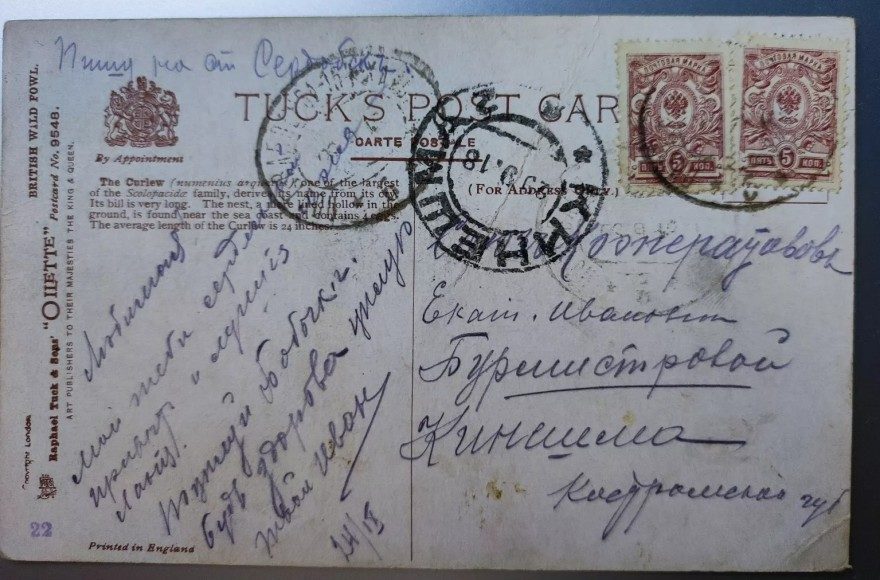 Пишу на ст
TUCK'S POST CAR
CARTE POSTALE
(FOR ADDRESS ONLY.)
By Appointment
The Curlew (numenius arquata) one of the largest
of the Scolopacidæ family, derives its name from its cry.
Its bill is very long. The nest, a mere lined hollow in the
ground, is found near the sea coast and contains 4 eggs.
The average length of the Curlew is 24 inches.
BRITISH WILD FOWL.
Raphael Tuck & Sons' "OILETTE" Postcard No. 9548.
ART PUBLISHERS TO THEIR MAJESTIES THE KING & QUEEN.
Copyright London
22
Printed in England
ПОЧТОВАЯ МАРКА
5 КОП.
ПЯТЬ 5 КОП.
КИНЕШМА
Любимая
Мой тебе
привет и
будь здорова целую
твой Иван
24/II
Екат. Ивановне
Бурмистровой
Кинешма
Костромской губ